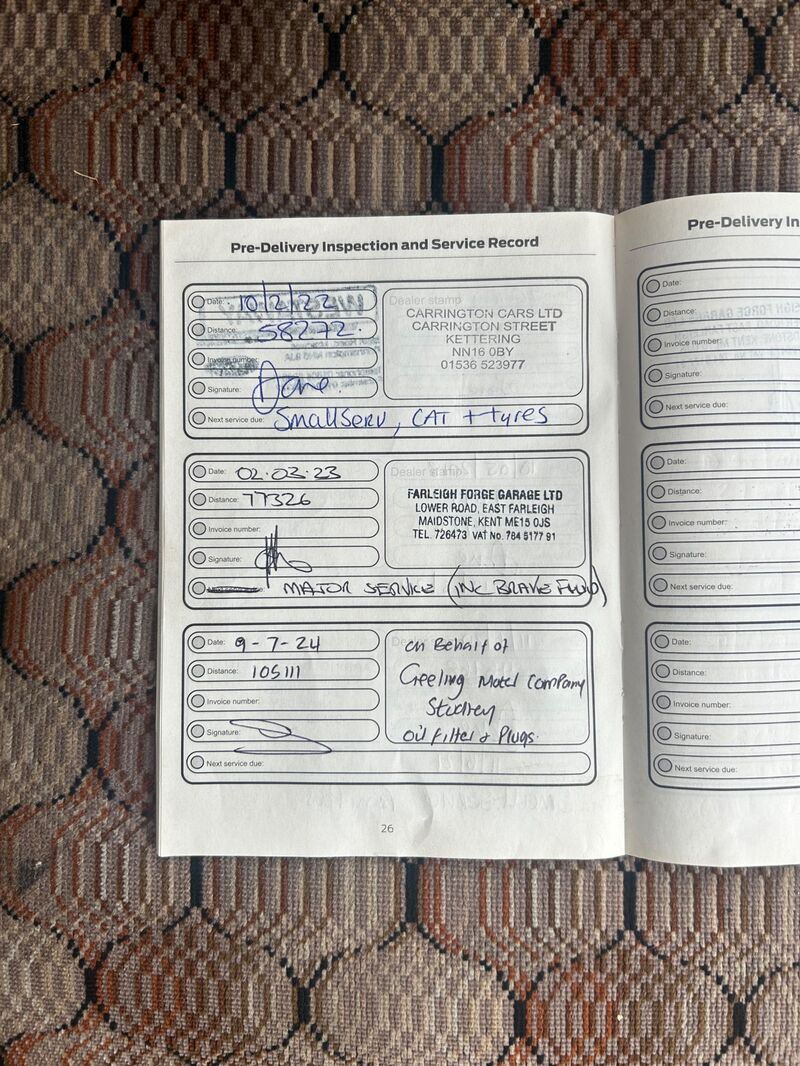 Pre-Delivery Inspection and Service Record
Date: 10/2/22
Distance: 58272.
Invoice number:
Signature: Dave.
Next service due: Small Serv, CAT + tyres
Dealer stamp
CARRINGTON CARS LTD
CARRINGTON STREET
KETTERING
NN16 0BY
01536 523977
Date: 02.03.23
Distance: 77326
Invoice number:
Signature:
MAJOR SERVICE (INC BRAKE FLUID)
Dealer stamp
FARLEIGH FORGE GARAGE LTD
LOWER ROAD, EAST FARLEIGH
MAIDSTONE, KENT ME15 OJS
TEL. 726473 VAT No. 784 5177 91
Date: 9-7-24
Distance: 105111
Invoice number:
Signature:
Next service due:
on Behalf of
Motor Company
Oil Filter & Plugs.
26
Pre-Delivery In
Date:
Distance:
Invoice number:
Signature:
Next service due:
Date:
Distance:
Invoice number:
Signature:
Next service due:
Date:
Distance:
Invoice number:
Signature:
Next service due: